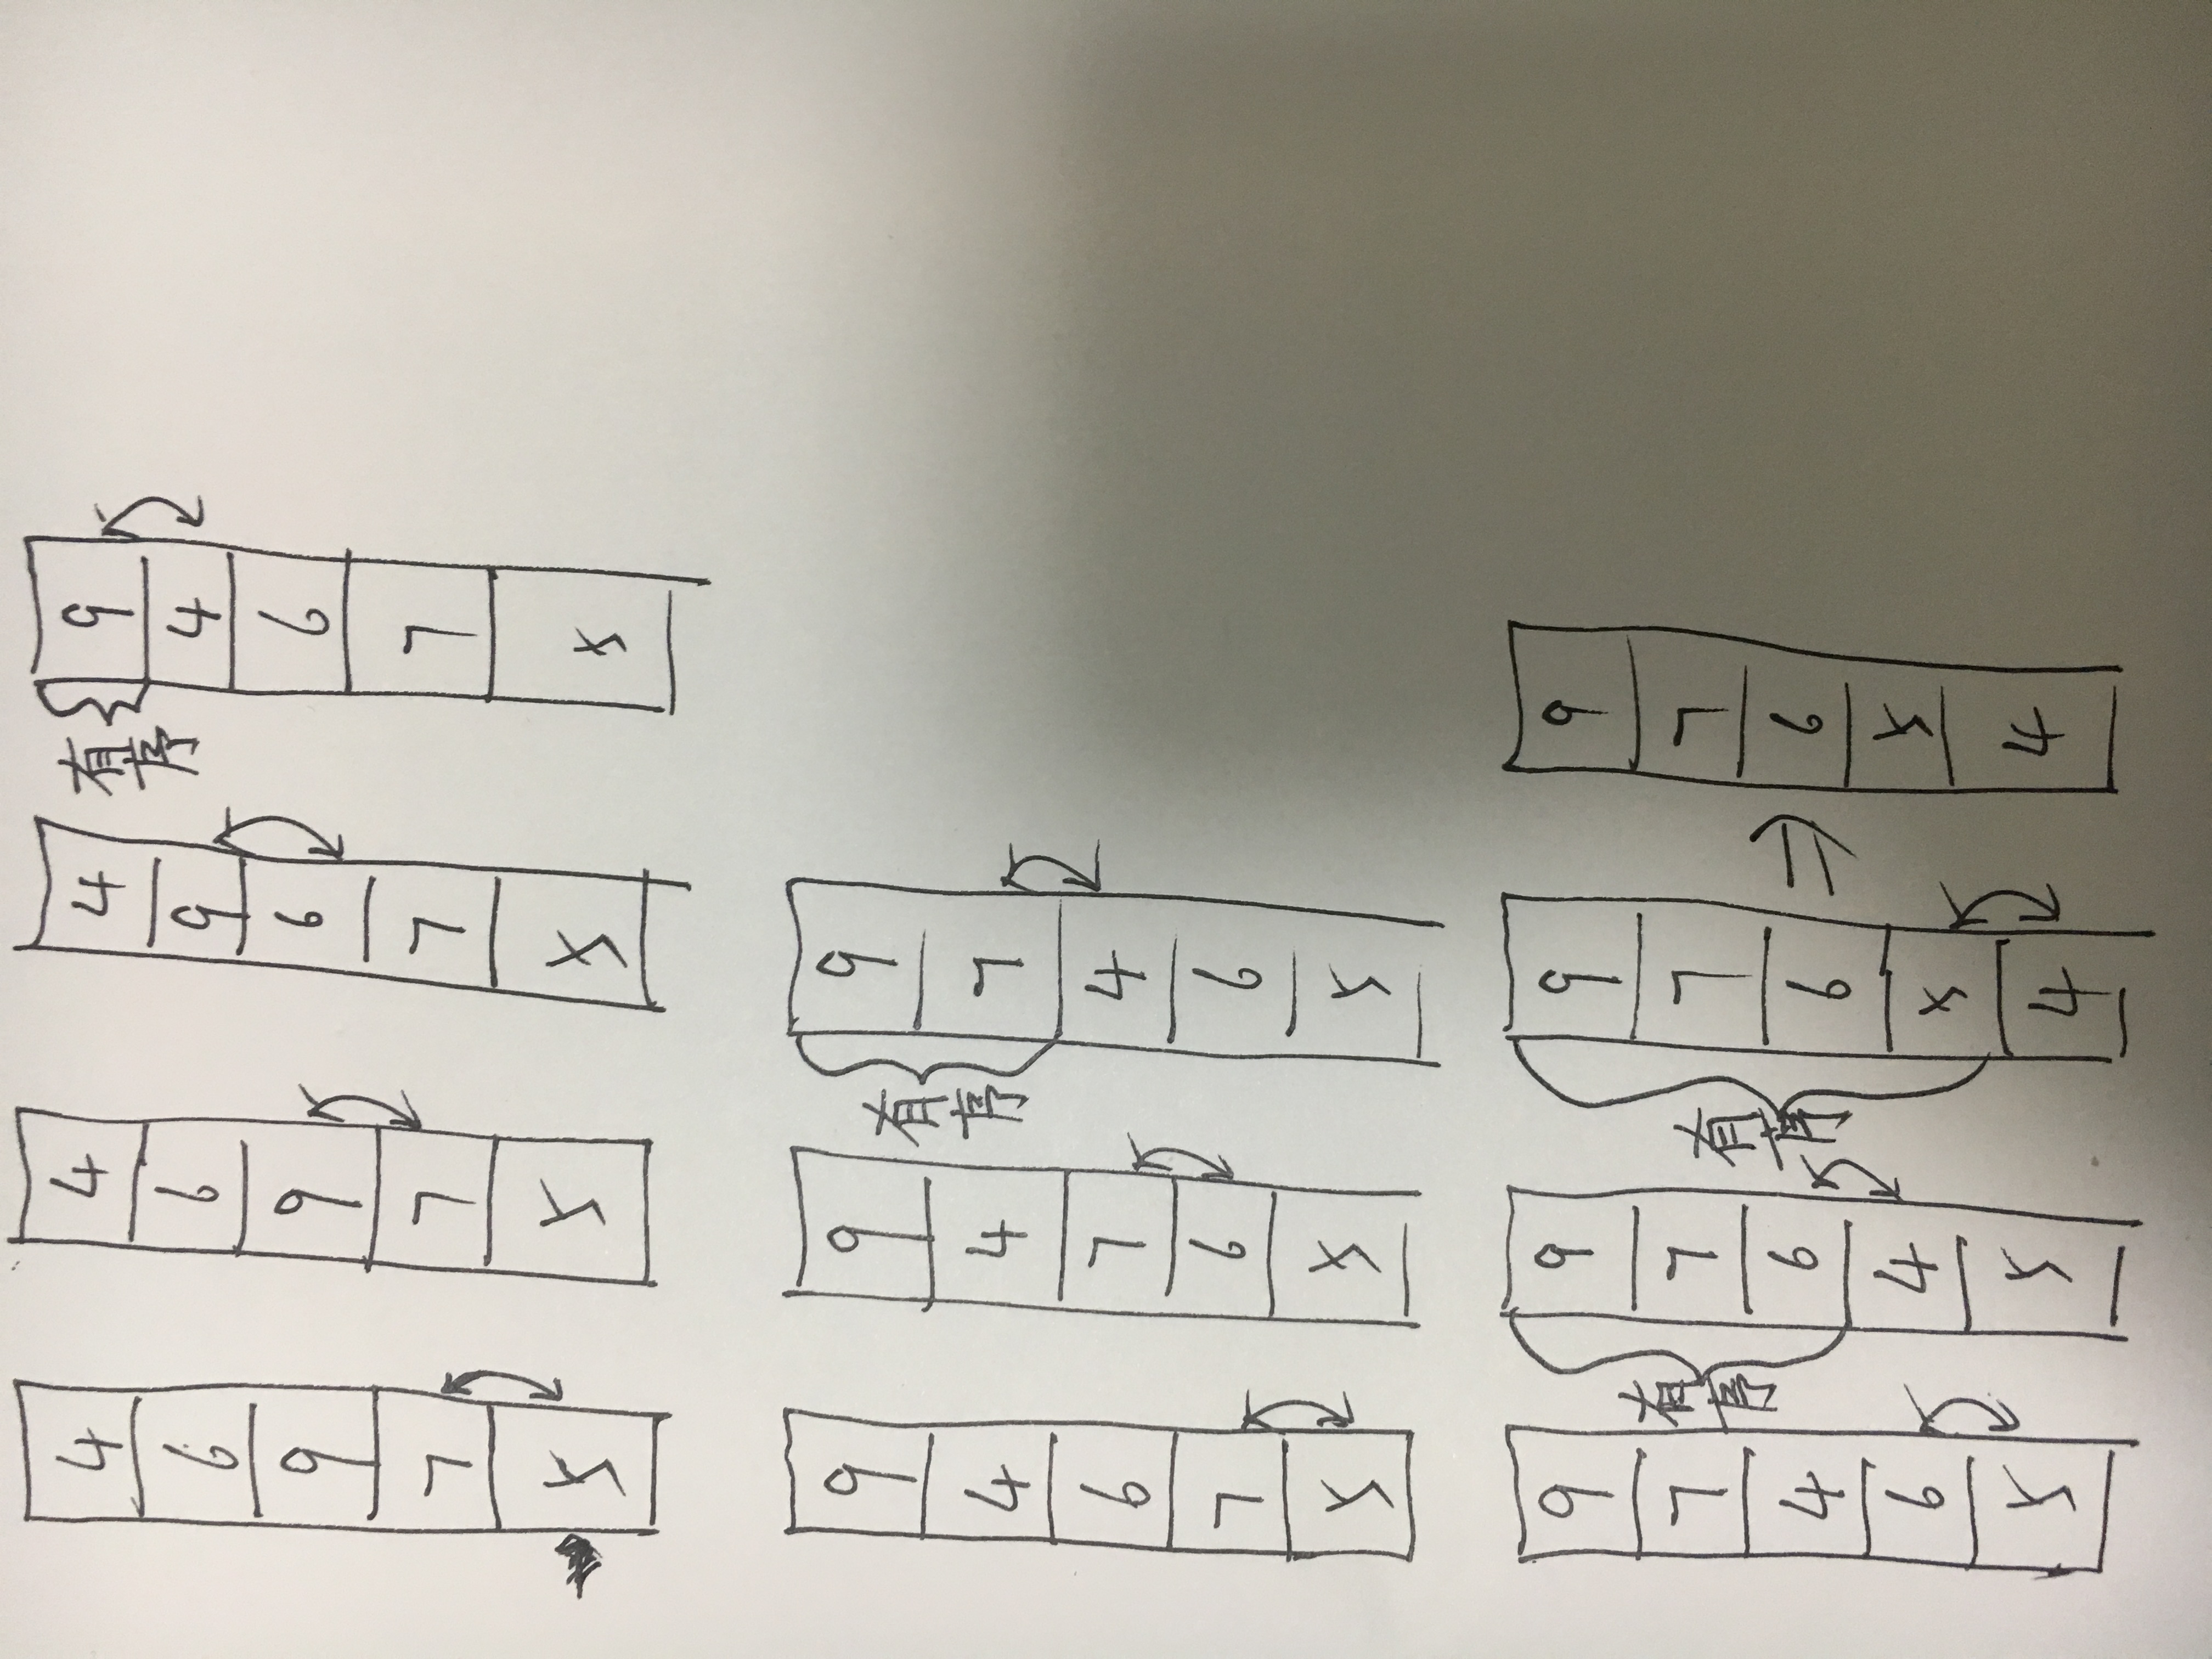 4
6
9
7
5
4
6
9
7
5
4
9
6
7
5
有序
9
4
6
7
5
9
4
6
7
5
9
4
7
6
5
有序
9
7
4
6
5
9
7
4
6
5
有序
9
7
6
4
5
有序
9
7
6
5
4
⇒
9
7
6
5
4